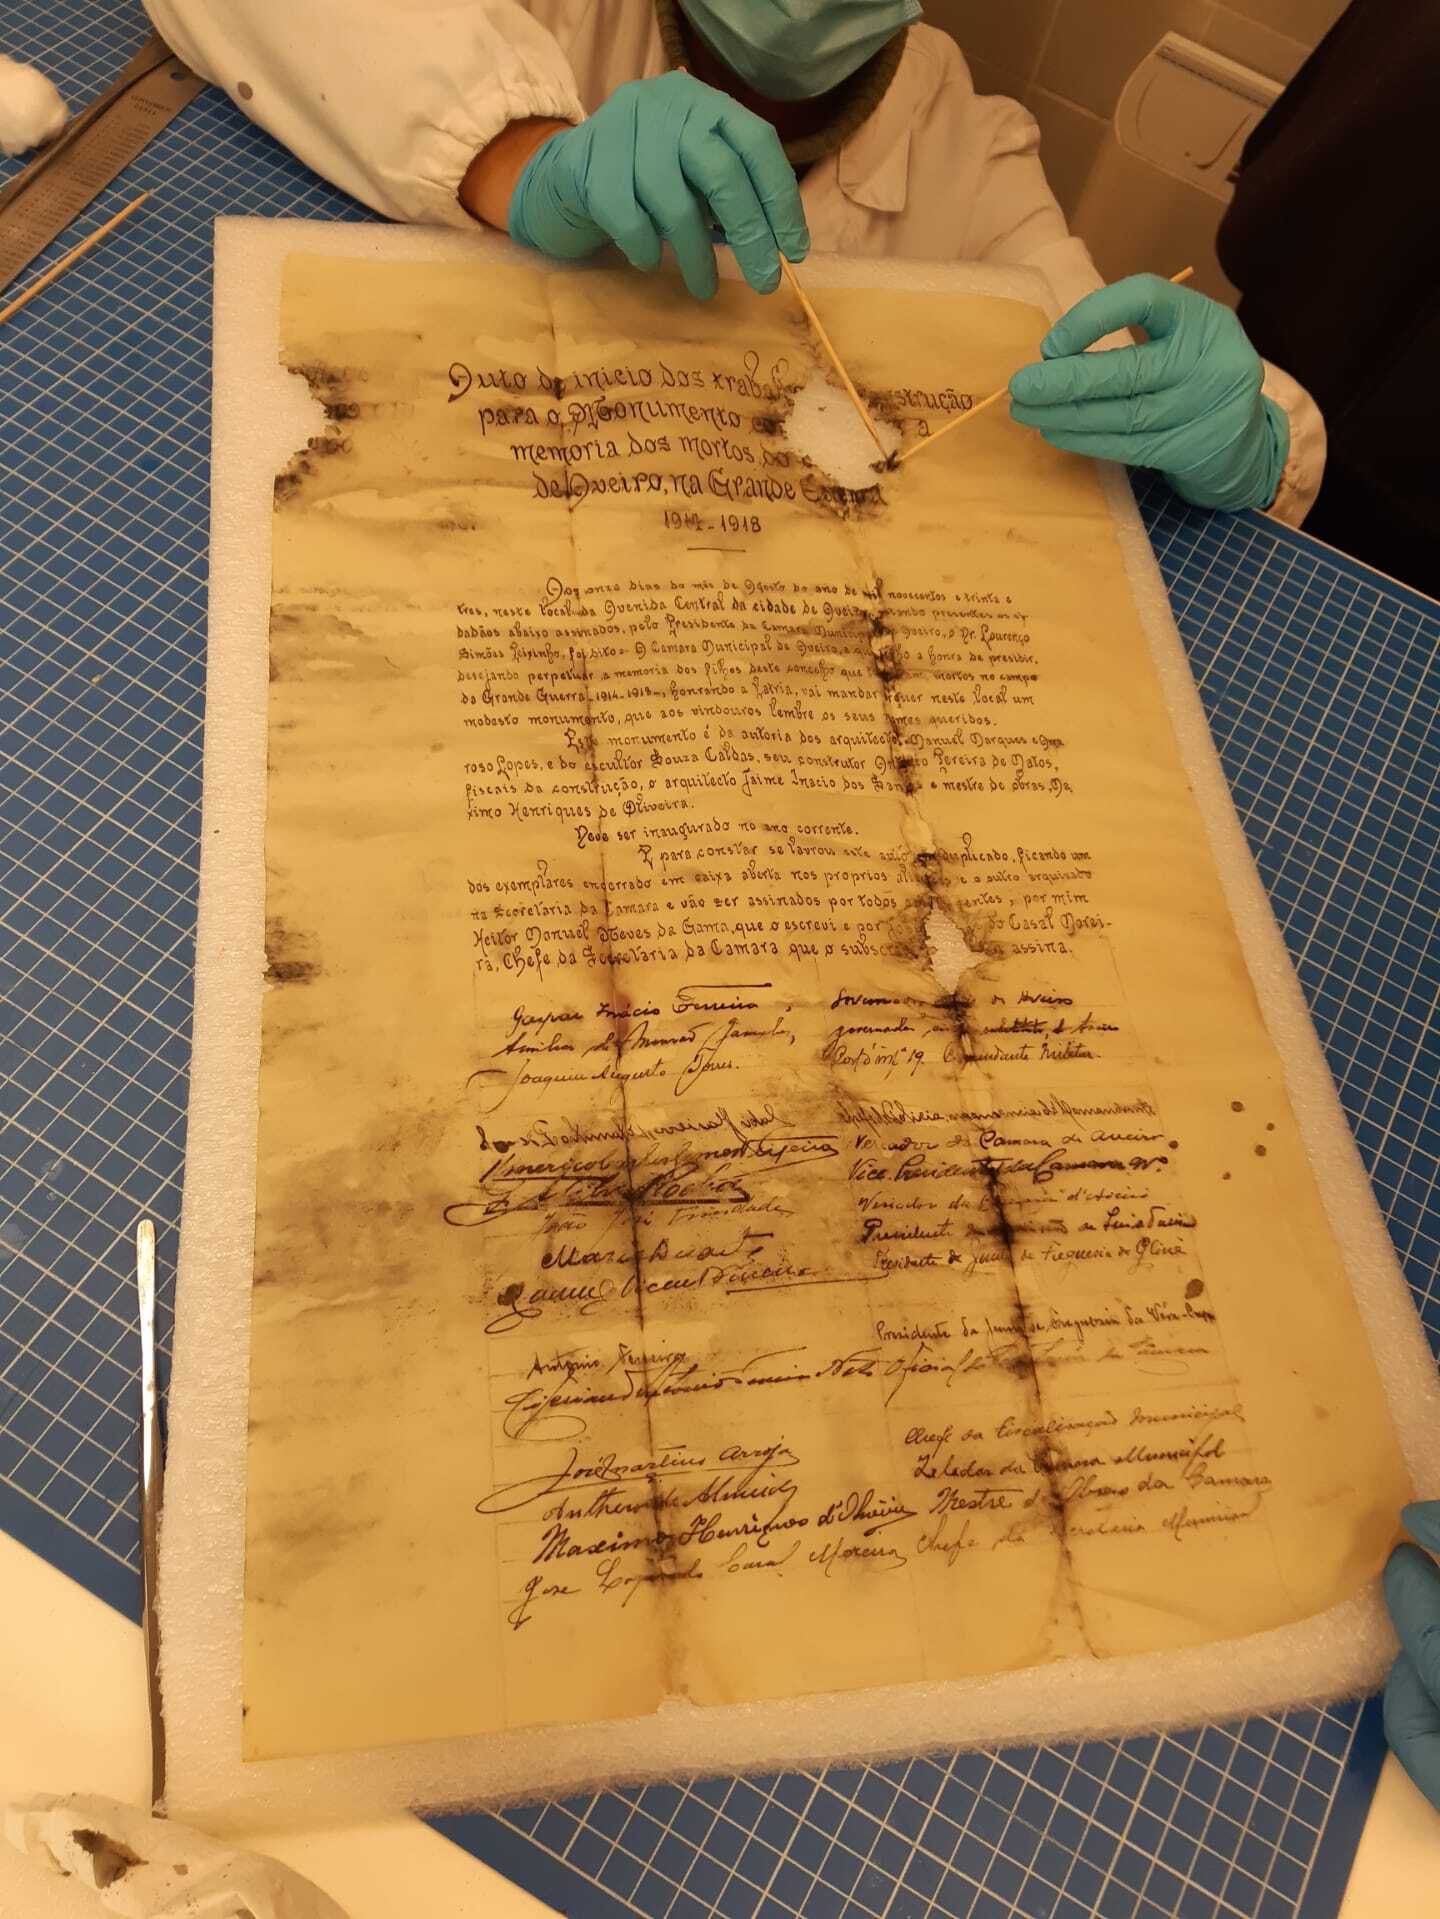 Auto de inicio dos trabal strução
para o Monumento co a
memoria dos mortos do c
de Aveiro, na Grande Guerra
1914-1918
Aos onze dias do mês de Agosto do ano de mil novecentos e trinta e
tres, neste local da Avenida Central da cidade de Aveiro, estando presentes os ci-
dadãos abaixo assinados, pelo Presidente da Camara Municipal de Aveiro, o Dr. Lourenço
Simões Peixinho, foi dito = A Camara Municipal de Aveiro, a que tenho a honra de presidir,
desejando perpetuar a memoria dos filhos deste concelho que t am, mortos no campo
da Grande Guerra-1914-1918-, honrando a Patria, vai mandar erguer neste local um
modesto monumento, que aos vindouros lembre os seus nomes queridos.
Este monumento é da autoria dos arquitectos Manuel Marques e Ama
roso Lopes, e do escultor Souza Caldas, seu construtor Antonio Pereira de Matos,
fiscais da construção, o arquitecto Jaime Inacio dos Santos e mestre de obras, Ma
ximo Henriques de Oliveira.
Deve ser inaugurado no ano corrente.
E para constar se lavrou este auto em duplicado, ficando um
dos exemplares encerrado em caixa aberta nos proprios ali es e o outro arquivado
na Secretaria da Camara e vão ser assinados por todos entes, por mim
Heitor Manuel Neves da Gama, que o escrevi e por do Casal Morei-
ra, Chefe da Secretaria da Camara que o subsc assina.
Gaspar Inácio Ferreira, Governador de Aveiro
governador substituto, de Aveiro
Joaquim Augusto Torres. Comandante Militar.
Ferreira Vidal Comandante
Vereador da Camara de Aveiro
Vice Presidente da Camara
Rocha Vereador da d'Aveiro
João José Trindade Presidente
Mario Duarte Presidente da Junta de Freguesia da Gloria
Manuel Vicente Ferreira Presidente da Junta de Freguesia da Vera-Cruz
António Ferreira
Cipriano Antonio Ferreira Neto Oficial da Secretaria da Camara
José Martins Arroja Chefe da Fiscalização Municipal
Anthero de Almeida Zelador da Camara Municipal
Maximo Henriques d'Oliveira Mestre d' Obras da Camara
José Casal Moreira Chefe da Secretaria Municipal